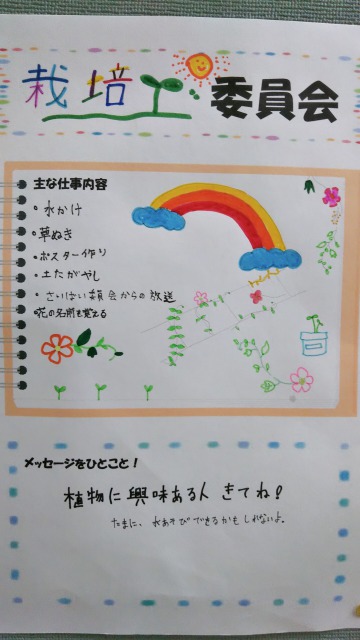 栽培委員会
主な仕事内容
・水かけ
・草ぬき
・ポスター作り
・土たがやし
・さいばい委員会からの放送
・花の名前を覚える
メッセージをひとこと！
植物に興味ある人 きてね！
たまに、水あそびできるかもしれないよ。